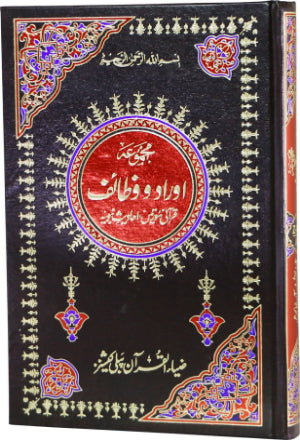 بسم الله الرحمن الرحيم
مجموعہ
اوراد و وظائف
قرآنی سورتیں، احادیث نبویہ
ضیاء القرآن پبلی کیشنز